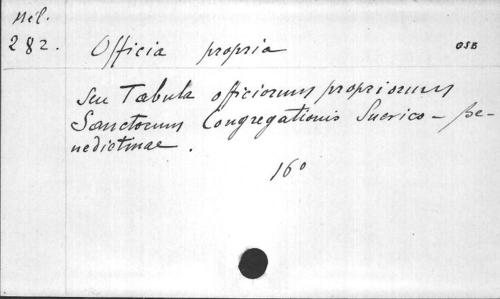 Rel.
282.
Officia propria OSB
seu Tabula officiorum propriorum
Sanctorum Congregationis Suevico-be-
nedictinae.
16°